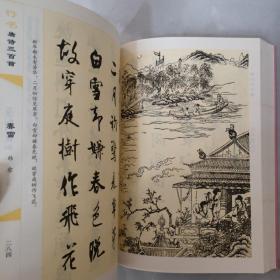 二月初驚見草芽
白雪却嫌春色晚
故穿庭樹作飛花
新年都未有芳华，二月初惊见草芽。白雪却嫌春色晚，故穿庭树作飞花。
行书
唐诗三百首
春雪
韩愈
二八四